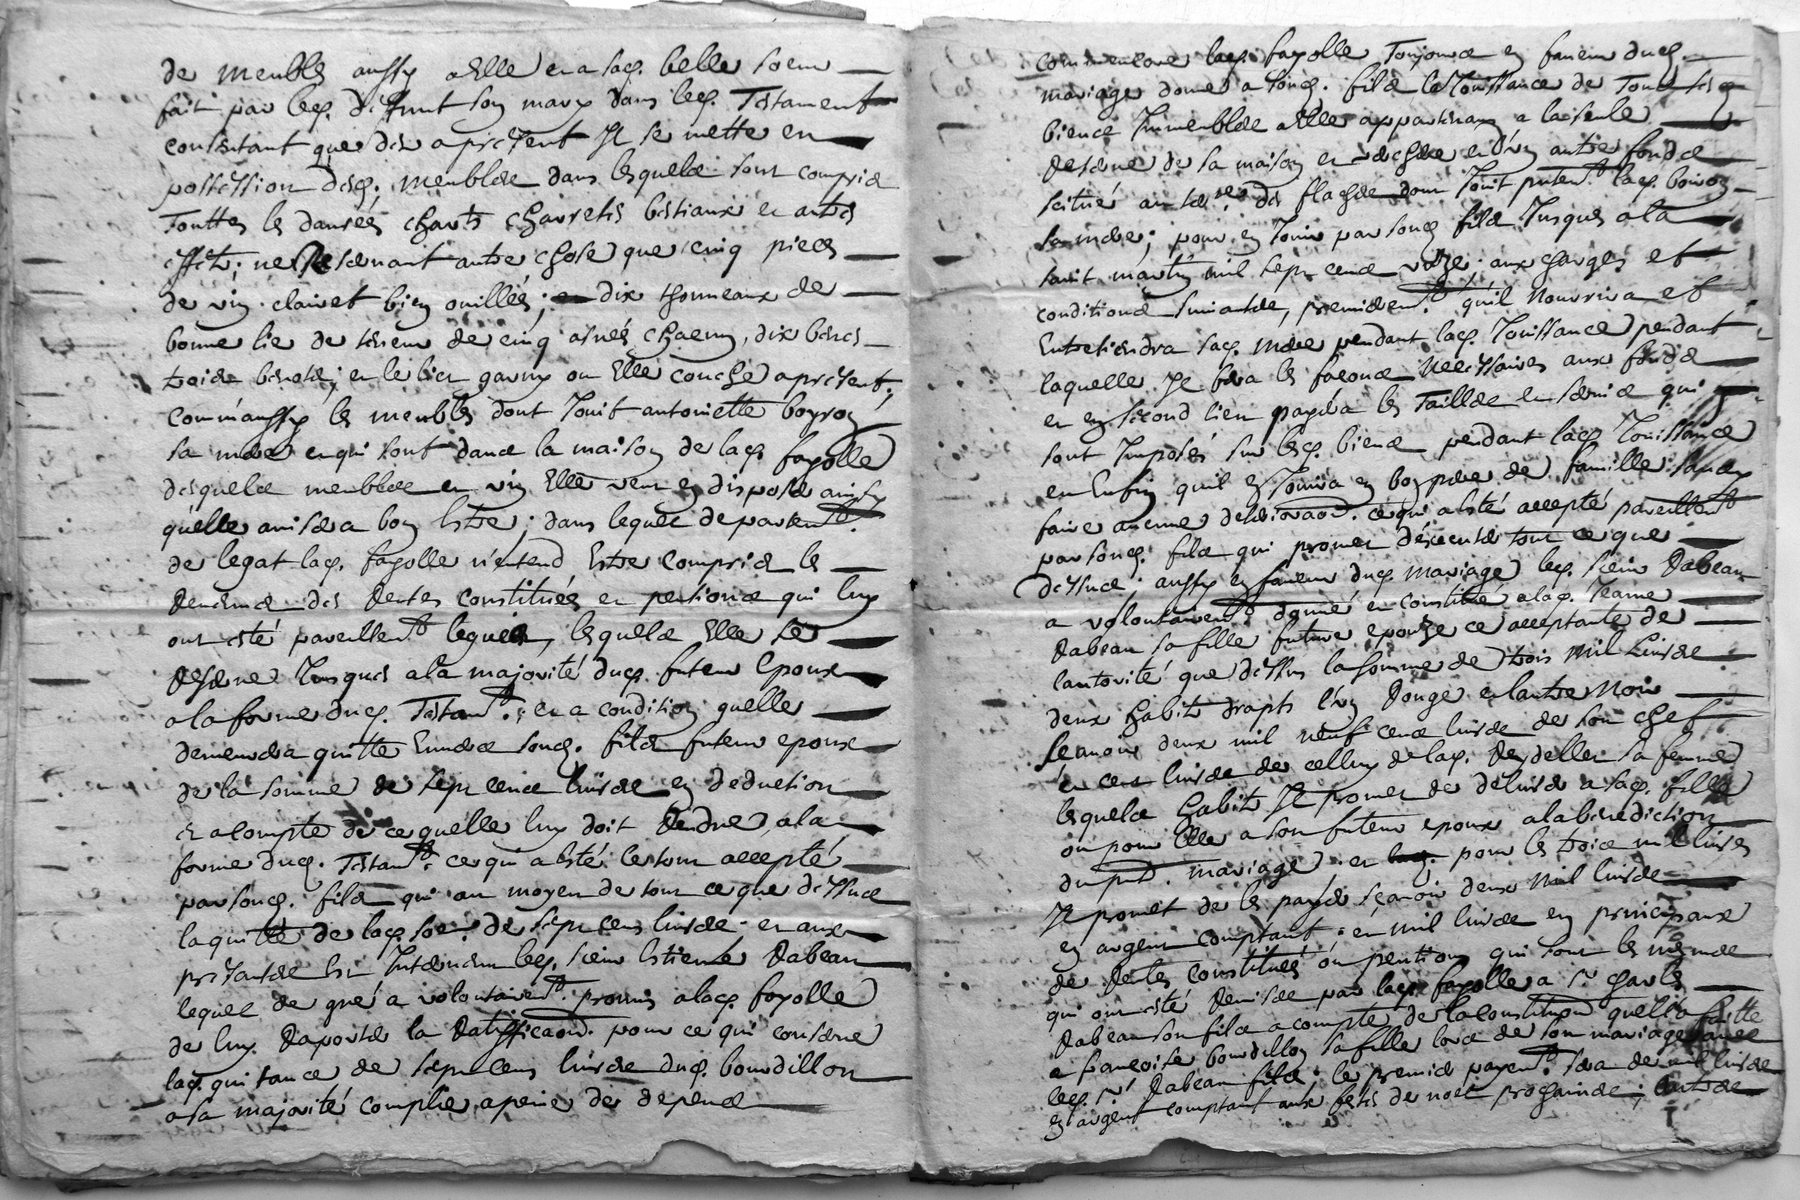 de meubles aussy a Elle en a sad. belle soeur
fait par led. deffunt son mary dans led. Testament
consentant que des apresent Il se mette en
possession desd. meubles dans lesquels sont compris
Touttes les danrées charts charretes bestiaux et autres
effets; ne se reservant autre chose que cinq pieces
de vin clairet bien ouillées; dix thonneaux de
bonne lie de teneur de cinq asnés chacun, dix benes
trois benots; et le lict garny ou Elle couche apresent,
comm'aussy les meubles dont Jouit antoinette boyron
sa mere et qui sont dans la maison de lad. fayolle
desquels meubles et vin Elle veut en disposer ainsy
qu'elle avisera bon Estre; dans lequel departem.t
de legat lad. fayolle n'entend Estre compris le
revenus des rentes constituées et pentions qui luy
ont esté pareillem.t legués, lesquels Elle se
reserve Jusques a la majorité dud. futeur Epoux
a la forme dud. Testam.t; et a condition quelle
demeurera quitte Envers sond. fils futeur epoux
de la somme de sept cents livres en deduction
et a compte de ce quelle luy doit rendre a la
forme dud. Testam.t ce qui a esté le tout accepté
par sond. fils qui au moyen de tout ce que dessus
la quitte de lad. so.e de sept cens livres et aux
presantes est Intervenu led. sieur Estienne Rabeau
lequel de gré a volontairem.t promis a lad. fayolle
de luy raporter la ratifficaon. pour ce qui conserne
lad. quitance de sept cens livres dud. bourdillon
a sa majorité complie a peine de depens
comm'encore lad. fayolle Toujours en faveur dud.
mariage donne a sond. fils la Jouissance de Tous ses
biens Immeubles a Elle appartenans a la seule
reserve de sa maison et d'un autre fonds
scitué au des flaches dont Jouit lad. boiron
sa mere; pour en Jouir par sond. fils Jusques a la
saint martin mil sept cens aux charges et
conditions suivantes, premierem.t qu'il nourrira et
Entretiendra sad. mere pendant lad. Jouissance pendant
laquelle Il fera les façons necessaires aux fonds
et en second lieu payera les Tailles et servis qui
sont Imposés sur lesd. biens pendant lad. Jouissance
et Enfin qu'il en Jouira en bon pere de famille sans y
faire aucunes deterioraon. ce qui a esté accepté pareillem.t
par sond. fils qui promet d'éxécuter tout ce que
dessus; aussy en faveur dud. mariage led. sieur Rabeau
a volontairem.t donné et constitué a lad. Jeanne
Rabeau sa fille future epouze ce acceptante de
l'autorité que dessus la somme de trois mil Livres
deux habits drapts l'un rouge et l'autre noir
scavoir deux mil neuf cens livres de son chef
et cent livres de celluy de lad. sa femme
lesquels habits Il promet de delivrer a sad. fille
ou pour Elle a son futeur epoux a la benediction
du pnt. mariage et pour les trois mil livres
Il promet de les payer sçavoir deux mil livres
en argent comptant et mil livres en principaux
de rentes constitués ou pention qui sont les mesmes
qui ont esté remises par lad. fayolle a s.r Charles
Rabeau son fils a compte de la constitution quelle a faitte
a françoise bourdillon sa fille lors de son mariage avec
led. s.r Rabeau fils; le premier payem.t sera de mil livres
en argent comptant aux festes de noel prochaines; autres